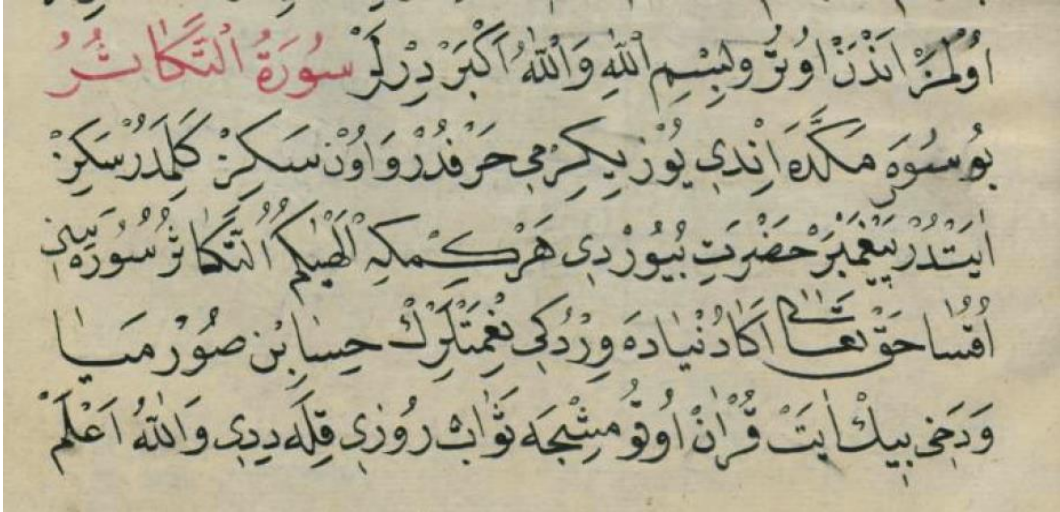 اُولْمَزْ اَنْدَنْ اُوتُرُ وَبِسْمِ اللّٰهِ وَاللّٰهُ اَكْبَرْ دِرْلَرْ سُورَةُ اَلتَّكَاثُرُ
بُو سُورَه مَكَّدَه اِنْدِي يُوزْ يِكِرْمِي حَرْفْدُرْ وَاُونْ سَكِزْ كَلِمَدُرْ سَكِزْ
اٰيَتْدُرْ پَيْغَمْبَرْ حَضْرَتِ بُيُورْدِي هَرْ كِمْكِه اَلْهٰيكُمُ التَّكَاثُرُ سُورَه سِنِ
اُقُسَا حَقْ تَعَالٰى اَكَا دُنْيَادَه وِرْدُكِي نِعْمَتْلَرِكْ حِسَابِنْ صُورْمَيَا
وَدَخِي بِيكْ اٰيَتْ قُرْاٰنْ اُوقُومِشْجَه ثَوَابْ رُوزِي قِلَه دِيدِي وَاللّٰهُ اَعْلَمْ